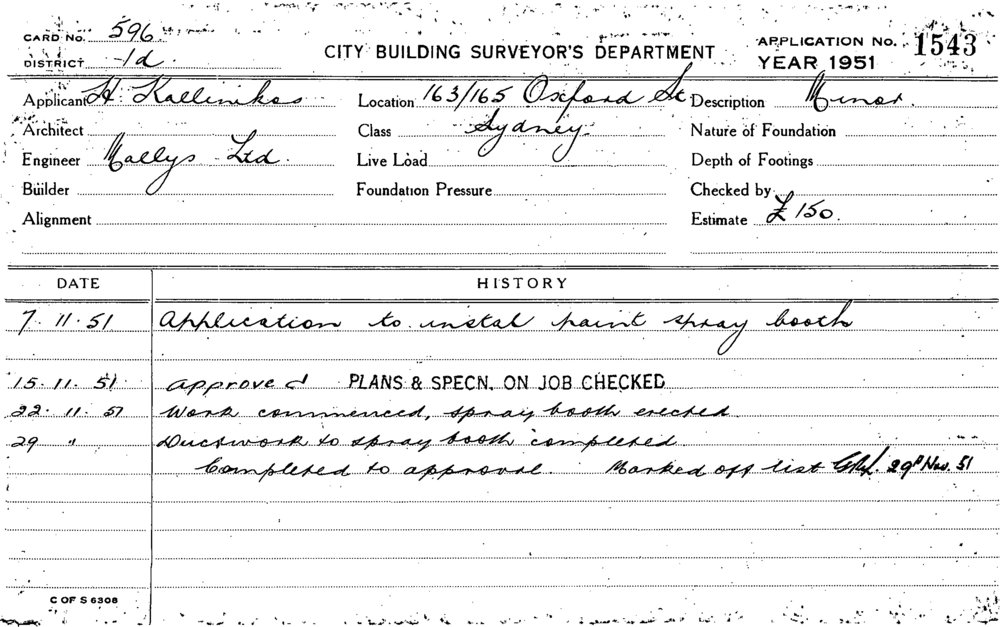 CARD No. 596
DISTRICT 1d
CITY BUILDING SURVEYOR'S DEPARTMENT
APPLICATION No. 1543
YEAR 1951
Applicant H. Kallinikos
Location 163/165 Oxford St
Description Minor.
Architect
Class Sydney.
Nature of Foundation
Engineer Mallys Ltd.
Live Load
Depth of Footings
Builder
Foundation Pressure
Checked by
Alignment
Estimate £150.
DATE HISTORY
7. 11. 51 Application to instal paint spray booth
15. 11. 51 approved PLANS & SPECN. ON JOB CHECKED
22. 11. 51 Work commenced, spray booth erected.
29 " Ductwork to spray booth completed
Completed to approval. Marked off list 29th Nov. 51
C OF S 6308